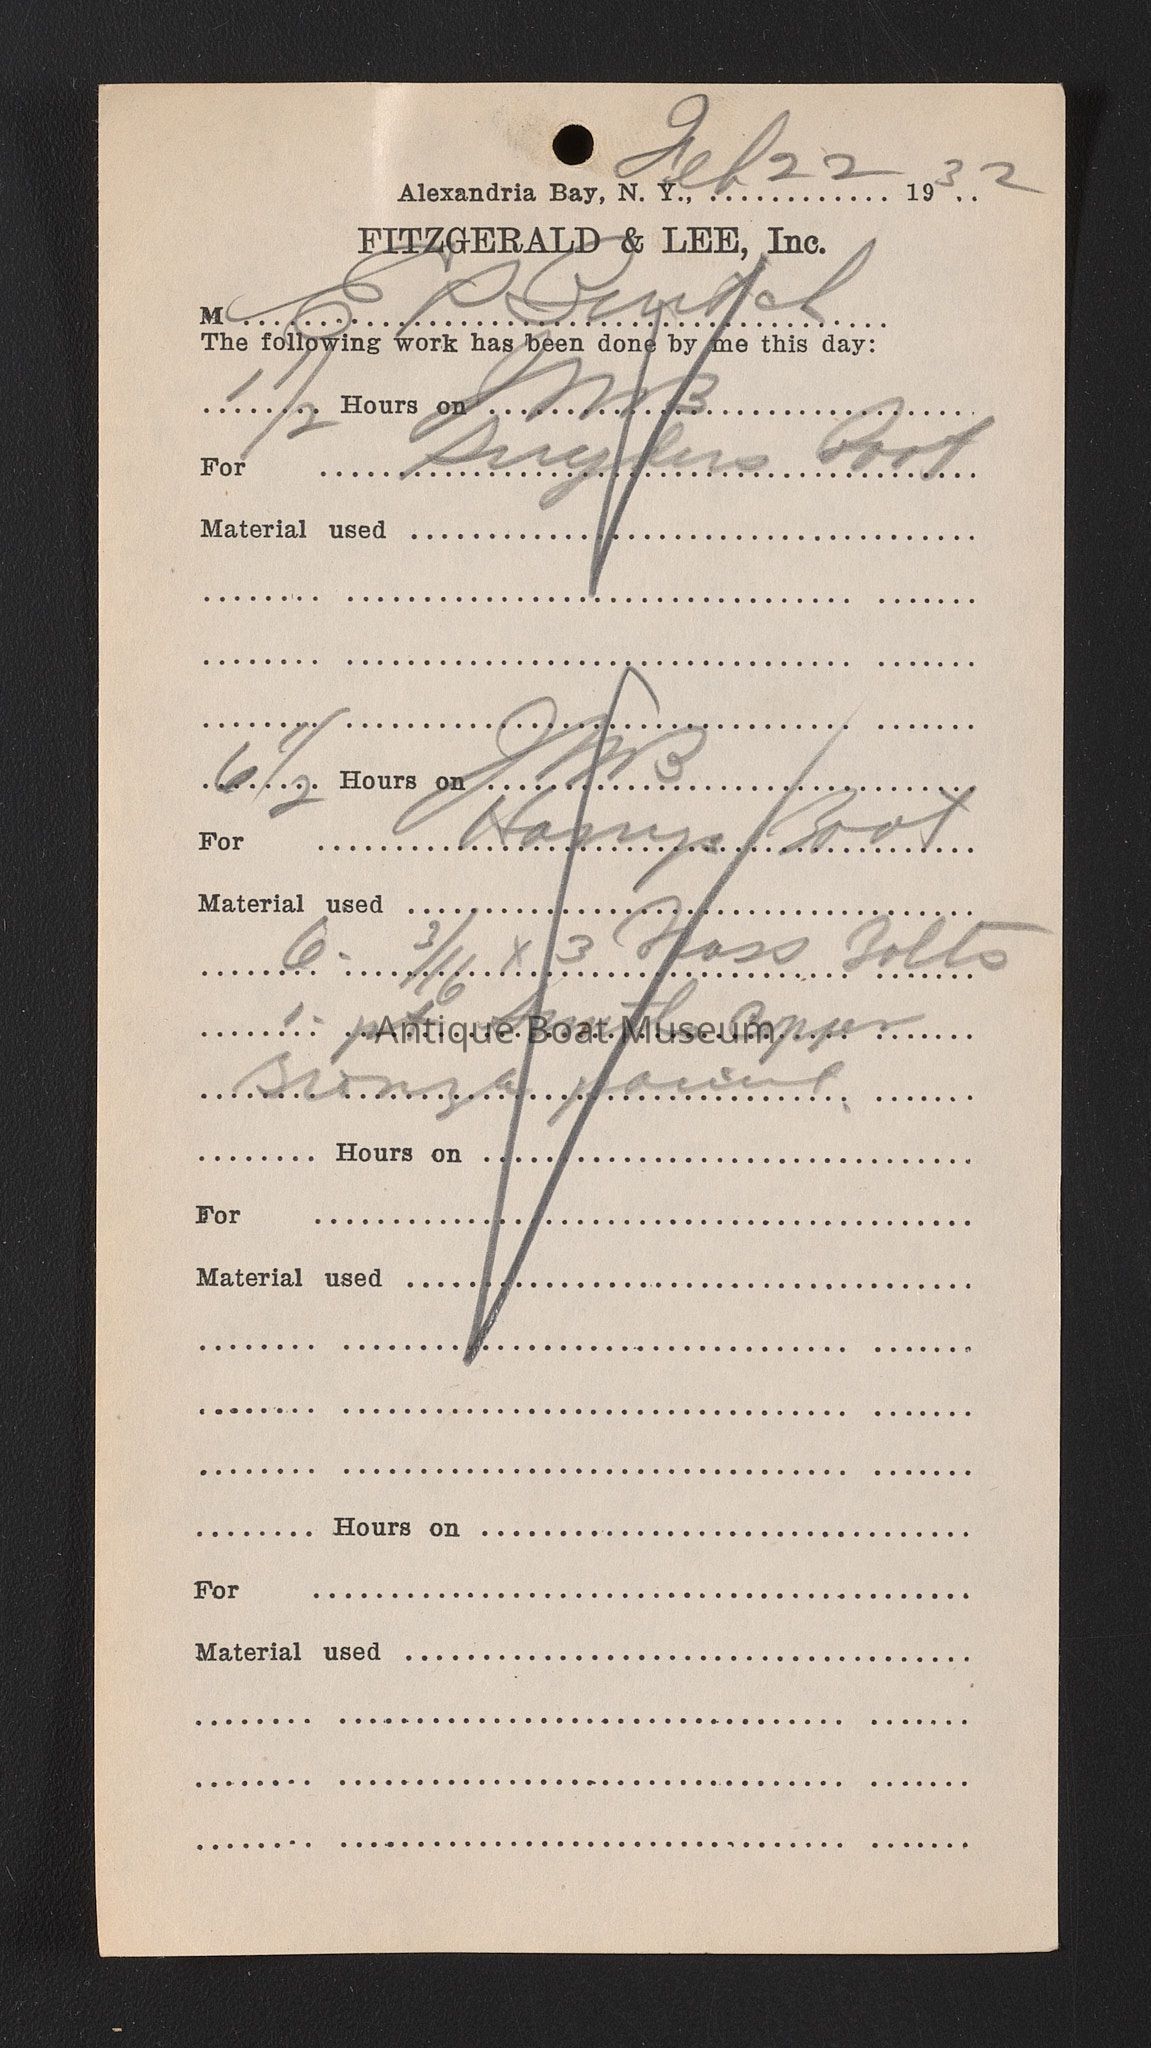 Feb 22
Alexandria Bay, N. Y., ............ 1932
FITZGERALD & LEE, Inc.
M E P
The following work has been done by me this day:
1 1/2 Hours on M B
For Snyders Boat
Material used
6 1/2 Hours on M B
For Harrys Boat
Material used
6 - 3/16 x 3 Bolts
1 - pt Smiths Copper
Antique Boat Museum
Bronze paint.
Hours on
For
Material used
Hours on
For
Material used